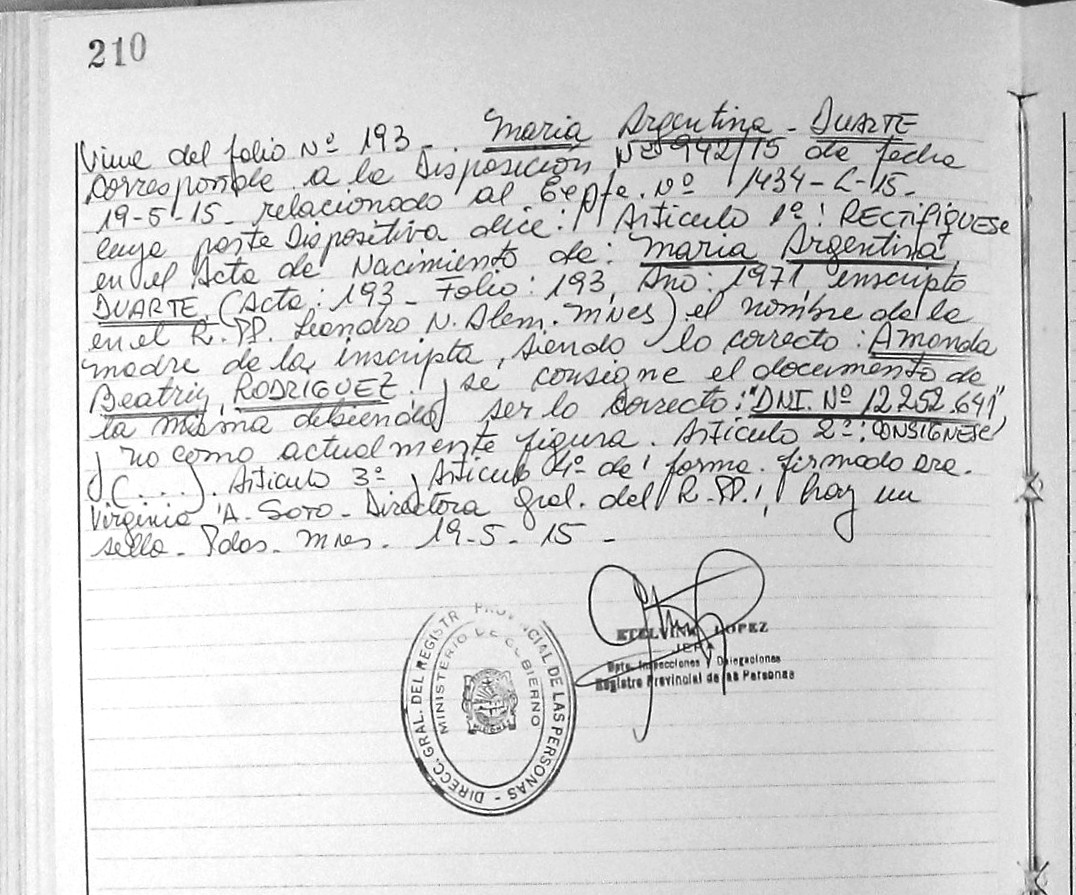 210
Viene del folio Nº 193. Maria Argentina - DUARTE
Corresponde a la Disposición Nº 942/15 de fecha
19-5-15- relacionado al Expte. Nº 1434-L-15-
cuya parte Dispositiva dice: Articulo 1º: RECTIFIQUESE
en el Acta de Nacimiento de: Maria Argentina
DUARTE, (Acta: 193 - Folio: 193, Año: 1971 inscripto
en el R.PP. Leandro N. Alem. Mnes) el nombre de la
madre de la inscripta, siendo lo correcto: Amanda
Beatriz RODRIGUEZ; se consigne el documento de
la misma debiendo ser lo correcto: "DNI. Nº 12.252.641",
y no como actualmente figura. Articulo 2º: CONSIGNESE
(...). Articulo 3º, Articulo 4º de forma. firmado
Virginia A. Soto - Directora Gral. del R.PP.; hay un
sello - Pdas. Mnes. 19-5-15-
ETELVINA LOPEZ
JEFA
Dpto. Inspecciones y Delegaciones
Registro Provincial de las Personas
DIRECC. GRAL. DEL REGISTR PROVINCIAL DE LAS PERSONAS -
MINISTERIO DE GOBIERNO